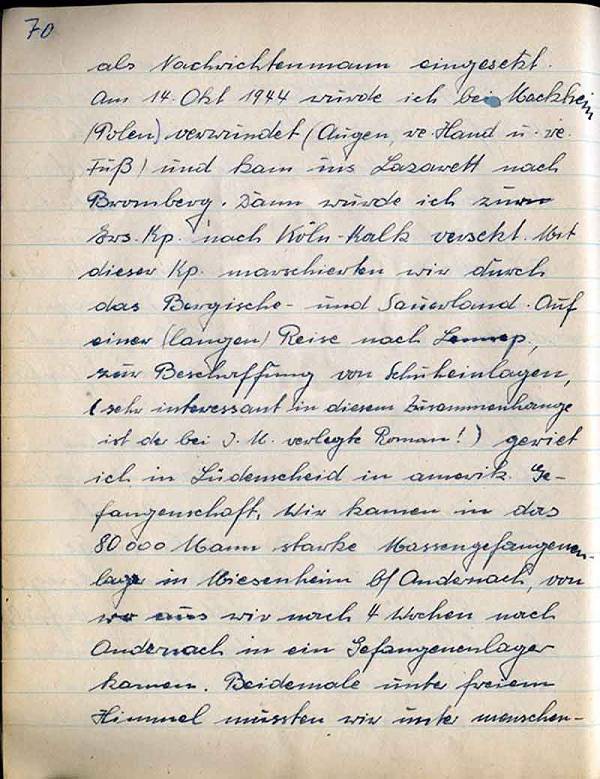 70
als Nachrichtenmann eingesetzt.
Am 14. Okt 1944 wurde ich bei Mackheim
(Polen) verwundet (Augen, re. Hand u. re.
Fuß) und kam ins Lazarett nach
Bromberg. Dann wurde ich zur
Ers. Kp. nach Köln-Kalk versetzt. Mit
dieser Kp. marschierten wir durch
das Bergische- und Sauerland. Auf
einer (langen) Reise nach Lennep,
zur Beschaffung von Schuheinlagen,
(sehr interessant in diesem Zusammenhange
ist der bei J. M. verlegte Roman!) geriet
ich in Lüdenscheid in amerik. Ge-
fangenschaft. Wir kamen in das
80 000 Mann starke Massengefangenen-
lager in Miesenheim b/ Andernach, von
wo aus wir nach 4 Wochen nach
Andernach in ein Gefangenenlager
kamen. Beidemale unter freiem
Himmel mussten wir unter menschen-